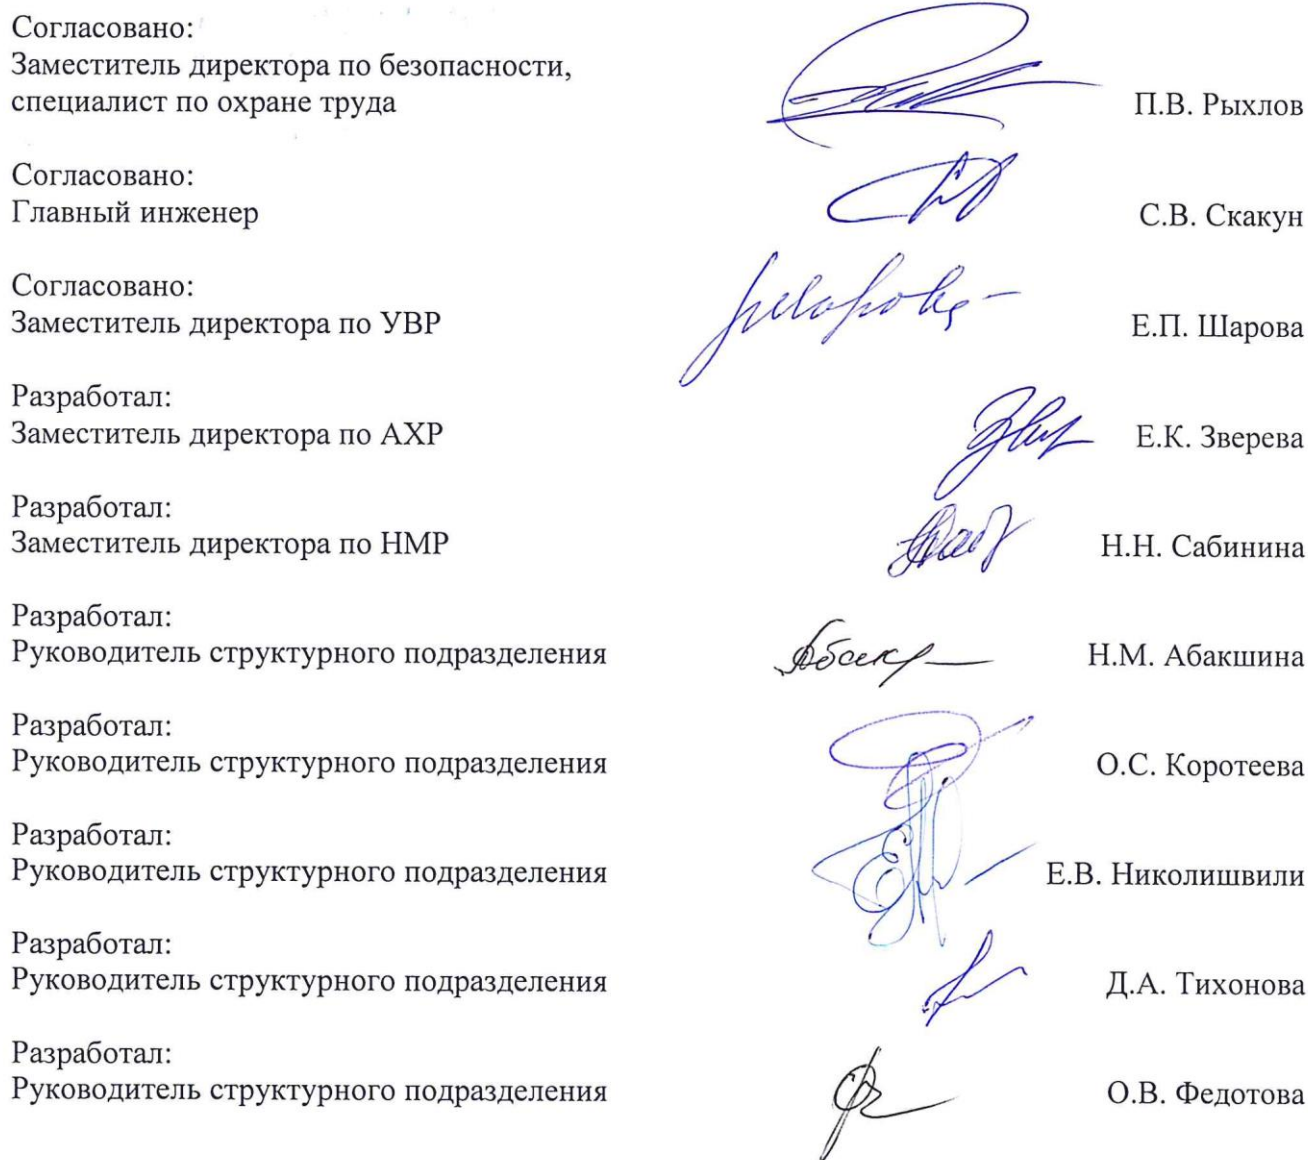 Согласовано:
Заместитель директора по безопасности,
специалист по охране труда П.В. Рыхлов
Согласовано:
Главный инженер С.В. Скакун
Согласовано:
Заместитель директора по УВР Е.П. Шарова
Разработал:
Заместитель директора по АХР Е.К. Зверева
Разработал:
Заместитель директора по НМР Н.Н. Сабинина
Разработал:
Руководитель структурного подразделения Н.М. Абакшина
Разработал:
Руководитель структурного подразделения О.С. Коротеева
Разработал:
Руководитель структурного подразделения Е.В. Николишвили
Разработал:
Руководитель структурного подразделения Д.А. Тихонова
Разработал:
Руководитель структурного подразделения О.В. Федотова